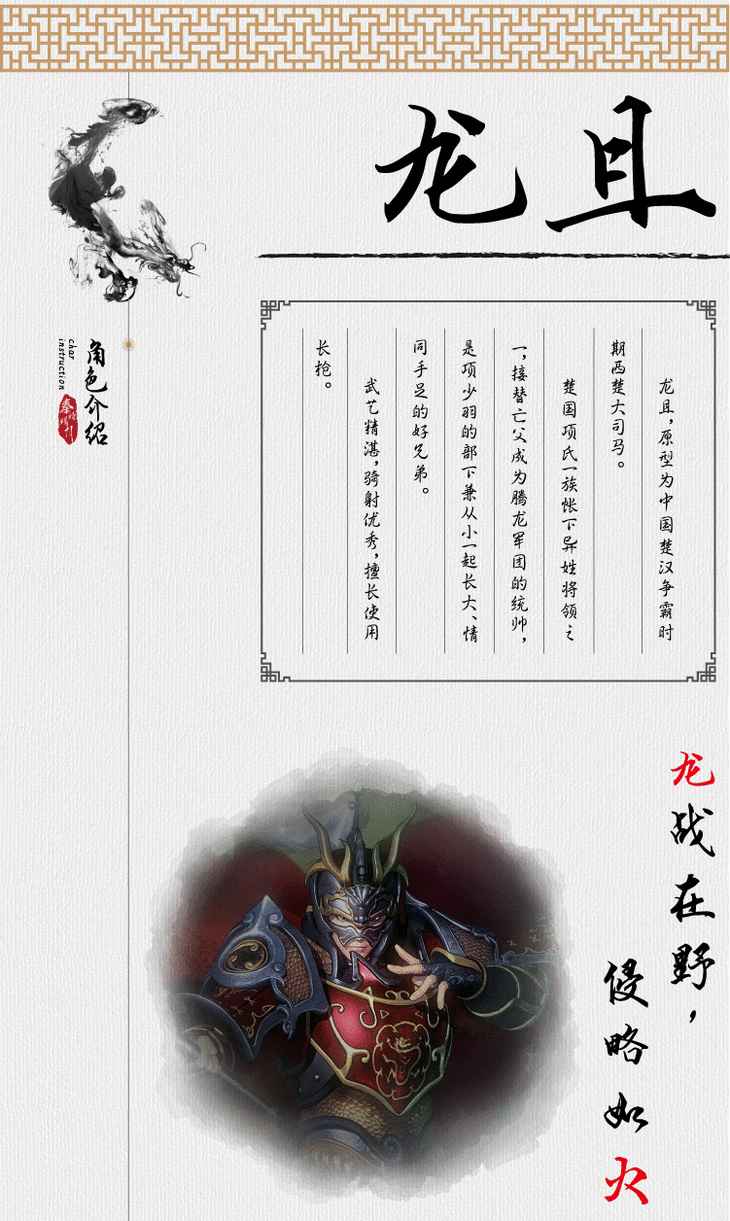 龙且
龙且，原型为中国楚汉争霸时
期西楚大司马。
楚国项氏一族帐下异姓将领之
一，接替亡父成为腾龙军团的统帅，
是项少羽的部下兼从小一起长大、情
同手足的好兄弟。
武艺精湛，骑射优秀，擅长使用
长枪。
角色介绍
char
instruction
秦时明月
龙战在野，
侵略如火